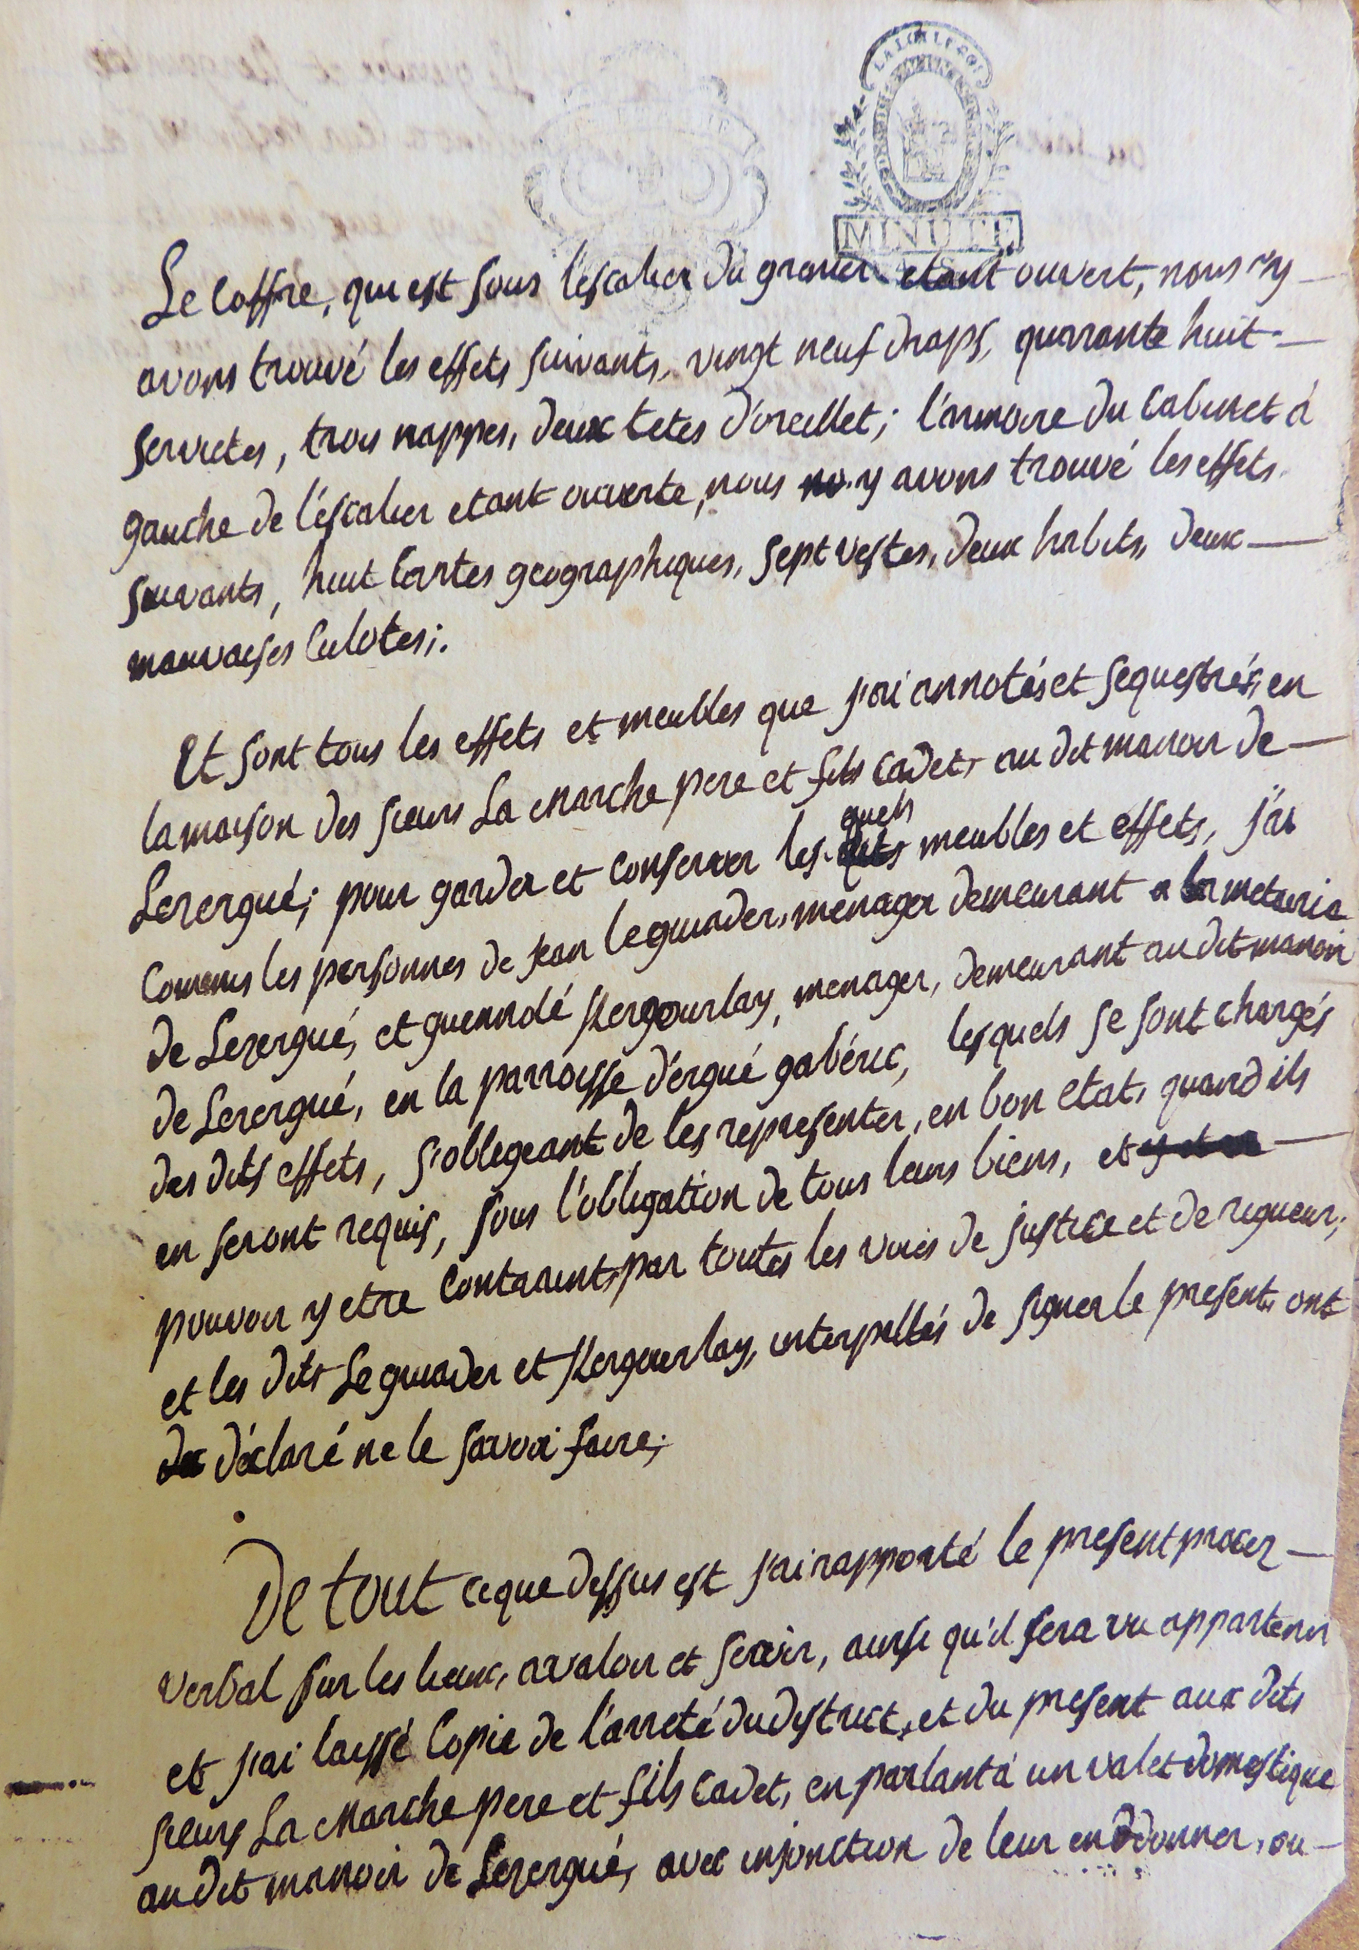 LA LOI LE ROI
MINUTE
Le Coffre, qui est sous l'escalier du grenier etant ouvert, nous y
avons trouvé les effets suivants, vingt neuf draps, quarante huit
servietes, trois nappes, deux tetes d'oreillet; l'armoire du Cabinet à
gauche de l'escalier etant ouverte, nous y avons trouvé les effets
suivants, huit Cartes geographiques, sept vestes, deux habits, deux
mauvaises Culotes;.
Et sont tous les effets et meubles que j'ai annotés et sequestrés, en
la maison des sieurs La Marche pere et fils cadet, au dit manoir de
Lezergué; pour garder et conserver les quels meubles et effets, j'ai
Commis les personnes de Jean Le guiader, menager demeurant a la metairie
de Lezergué, et guennolé Kergourlay, menager, demeurant au dit manoir
de Lezergué, en la parroisse d'ergué gabéric, lesquels se sont chargés
des dits effets, s'obligeant de les representer, en bon etat, quand ils
en seront requis, sous l'obligation de tous leurs biens, et
pouvoir y etre Contraints par toutes les voies de justice et de rigueur;
et les dits Le guiader et Kergourlay, interpellés de signer le present, ont
déclaré ne le savoir faire;
De tout ce que dessus est j'ai rapporté le present procez
verbal sur les lieux, a valoir et servir, ainsi qu'il sera vu appartenir
et j'ai laissé Copie de l'arreté du district, et du present aux dits
sieurs La Marche pere et fils Cadet, en parlant à un valet domestique
au dit manoir de Lezergué, avec injonction de leur en donner, ou